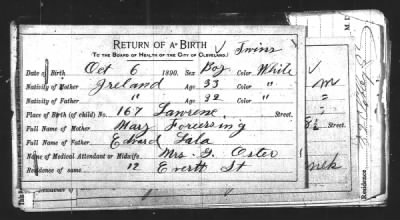 RETURN OF A BIRTH √ Twins
TO THE BOARD OF HEALTH OF THE CITY OF CLEVELAND.
Date of Birth Oct 6 1890. Sex Boy Color White
Nativity of Mother Ireland Age 33 Color "
Nativity of Father " Age 32 Color "
Place of Birth (of child) No. 167 Lawrene Street.
Full Name of Mother Mary
Full Name of Father Edward Lala
Name of Medical Attendant or Midwife. Mrs. G. Oster
Residence of same 12 Everett St
M. D.
Residence
This